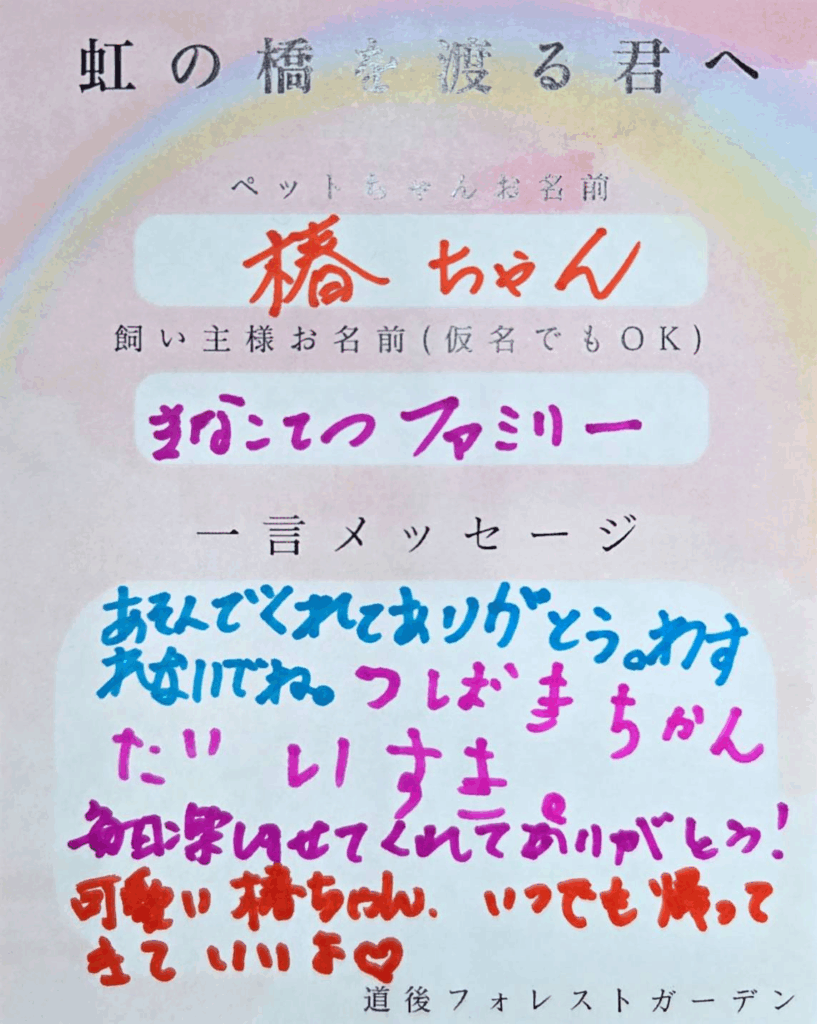 虹の橋を渡る君へ
ペットちゃんお名前
椿ちゃん
飼い主様お名前(仮名でもOK)
まなこてつファミリー
一言メッセージ
あそんでくれてありがとう。わす
れないでね。つばきちゃん
だいすき。
毎日楽しませてくれてありがとう!
可愛い椿ちゃん、いつでも帰って
きていいよ♡
道後フォレストガーデン